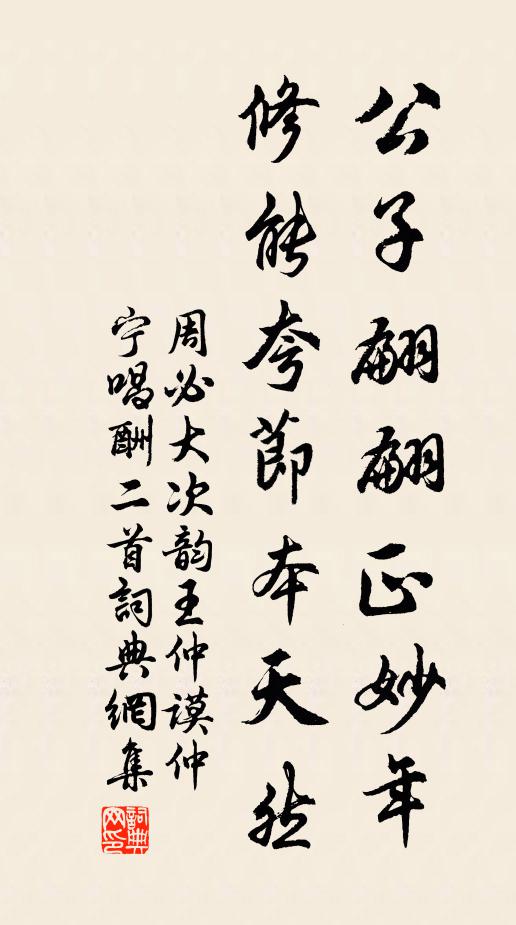 公子翩翩正妙年
修能夸節本天然
周必大次韵王仲謨仲
宁唱酬二首詞典網集
詞典网印